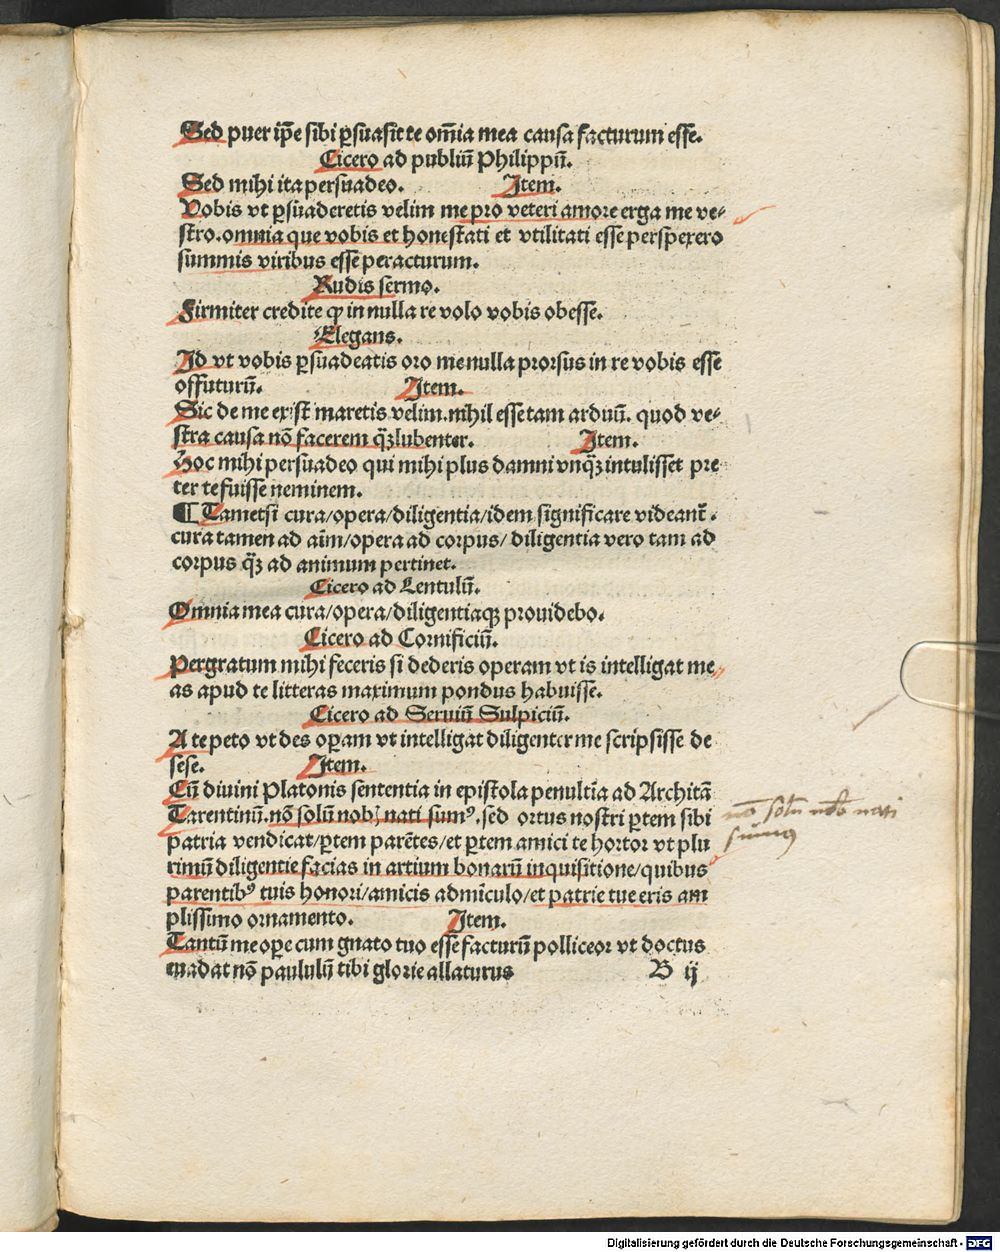 Sed puer ip̄e sibi p̱suasit te om̄ia mea causa facturum esse.
Cicero ad publiū Philippū.
Sed mihi ita persuadeo. Item.
Vobis vt p̱suaderetis velim me pro veteri amore erga me ve⸗
stro. omnia que vobis et honestati et vtilitati esse perspexero
summis viribus esse peracturum.
Rudis sermo.
Firmiter credite ꝙ in nulla re volo vobis obesse.
Elegans.
Id vt vobis p̱suadeatis oro me nulla prorsus in re vobis esse
offuturū. Item.
Sic de me exist̄maretis velim. nihil esse tam arduū. quod ve⸗
stra causa nō facerem q̄ꝫ lubenter. Item.
Hoc mihi persuadeo qui mihi plus damni vnq̄ꝫ intulisset pre
ter te fuisse neminem.
¶ Tametsi cura/opera/diligentia/idem significare videant̄.
cura tamen ad aīm/opera ad corpus/ diligentia vero tam ad
corpus q̄ꝫ ad animum pertinet.
Cicero ad Lentulū.
Omnia mea cura/opera/diligentiaqꝫ prouidebo.
Cicero ad Cornificiū.
Pergratum mihi feceris si dederis operam vt is intelligat me⸗
as apud te litteras maximum pondus habuisse.
Cicero ad Seruiū Sulpiciū.
A te peto vt des op̱am vt intelligat diligenter me scripsisse de
sese. Item.
Cū diuini Platonis sententia in epistola penultia ad Architā
Tarentinū. nō solū nob̄ nati sumꝰ. sed ortus nostri p̱tem sibi
patria vendicat/p̱tem parētes/et p̱tem amici te hortor vt plu
rimū diligentie facias in artium bonarū inquisitione/quibus
parentibꝰ tuis honori/amicis admīculo/et patrie tue eris am
plissimo ornamento. Item.
Tantū me ope cum gnato tuo esse facturū polliceor vt doctus
euadat nō paululū tibi glorie allaturus B ij
nō solū nob̄ nati
sumꝰ
Digitalisierung gefördert durch die Deutsche Forschungsgemeinschaft - DFG